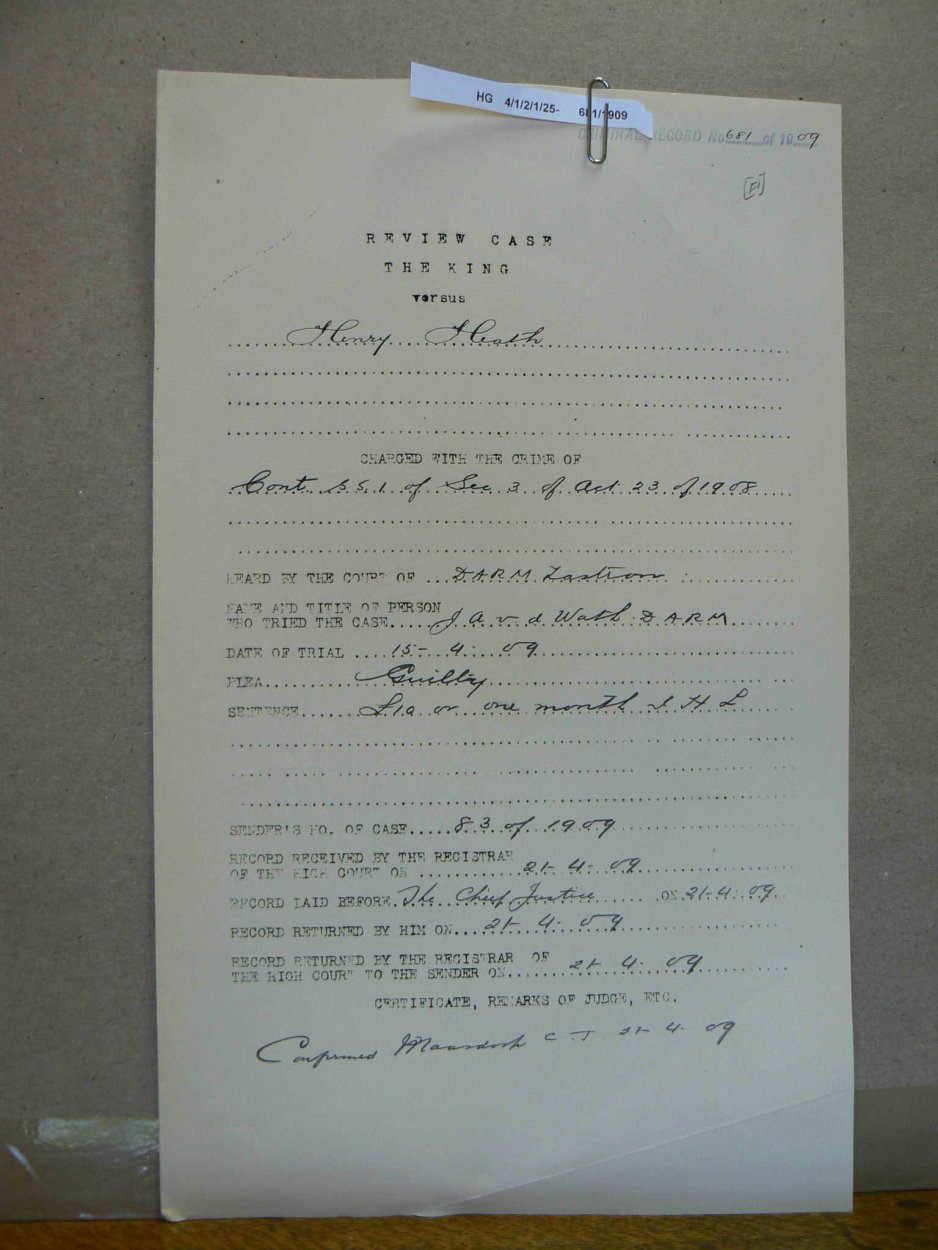 HG 4/1/2/1/25- 681/1909
CRIMINAL RECORD No. 681 of 1909
REVIEW CASE
THE KING
versus
Henry Heath
CHARGED WITH THE CRIME OF
Cont. s.s.1. of Sec 3 of Act 23 of 1908
HEARD BY THE COURT OF ... D.A.R.M. Zastron
NAME AND TITLE OF PERSON
WHO TRIED THE CASE..... J. A. v. d. Wath D A R M
DATE OF TRIAL .... 15- 4. 09
PLEA......... Guilty
SENTENCE...... £10 or one month I H L
SENDER'S NO. OF CASE..... 83 of 1909
RECORD RECEIVED BY THE REGISTRAR
OF THE HIGH COURT ON ........... 21- 4- 09
RECORD LAID BEFORE. The Chief Justice ....... ON 21- 4- 09
RECORD RETURNED BY HIM ON.... 21- 4- 09
RECORD RETURNED BY THE REGISTRAR OF
THE HIGH COURT TO THE SENDER ON..... 21- 4- 09
CERTIFICATE, REMARKS OF JUDGE, ETC.
Confirmed Maasdorp C J 21- 4- 09